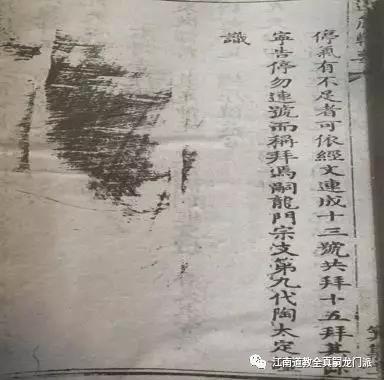 停氣有不足者可依經文連成十三號共拜十五拜其餘
寧告停勿連號而稱拜馮嗣龍門宗支第九代陶太定
識
江南道教全真嗣龙门派